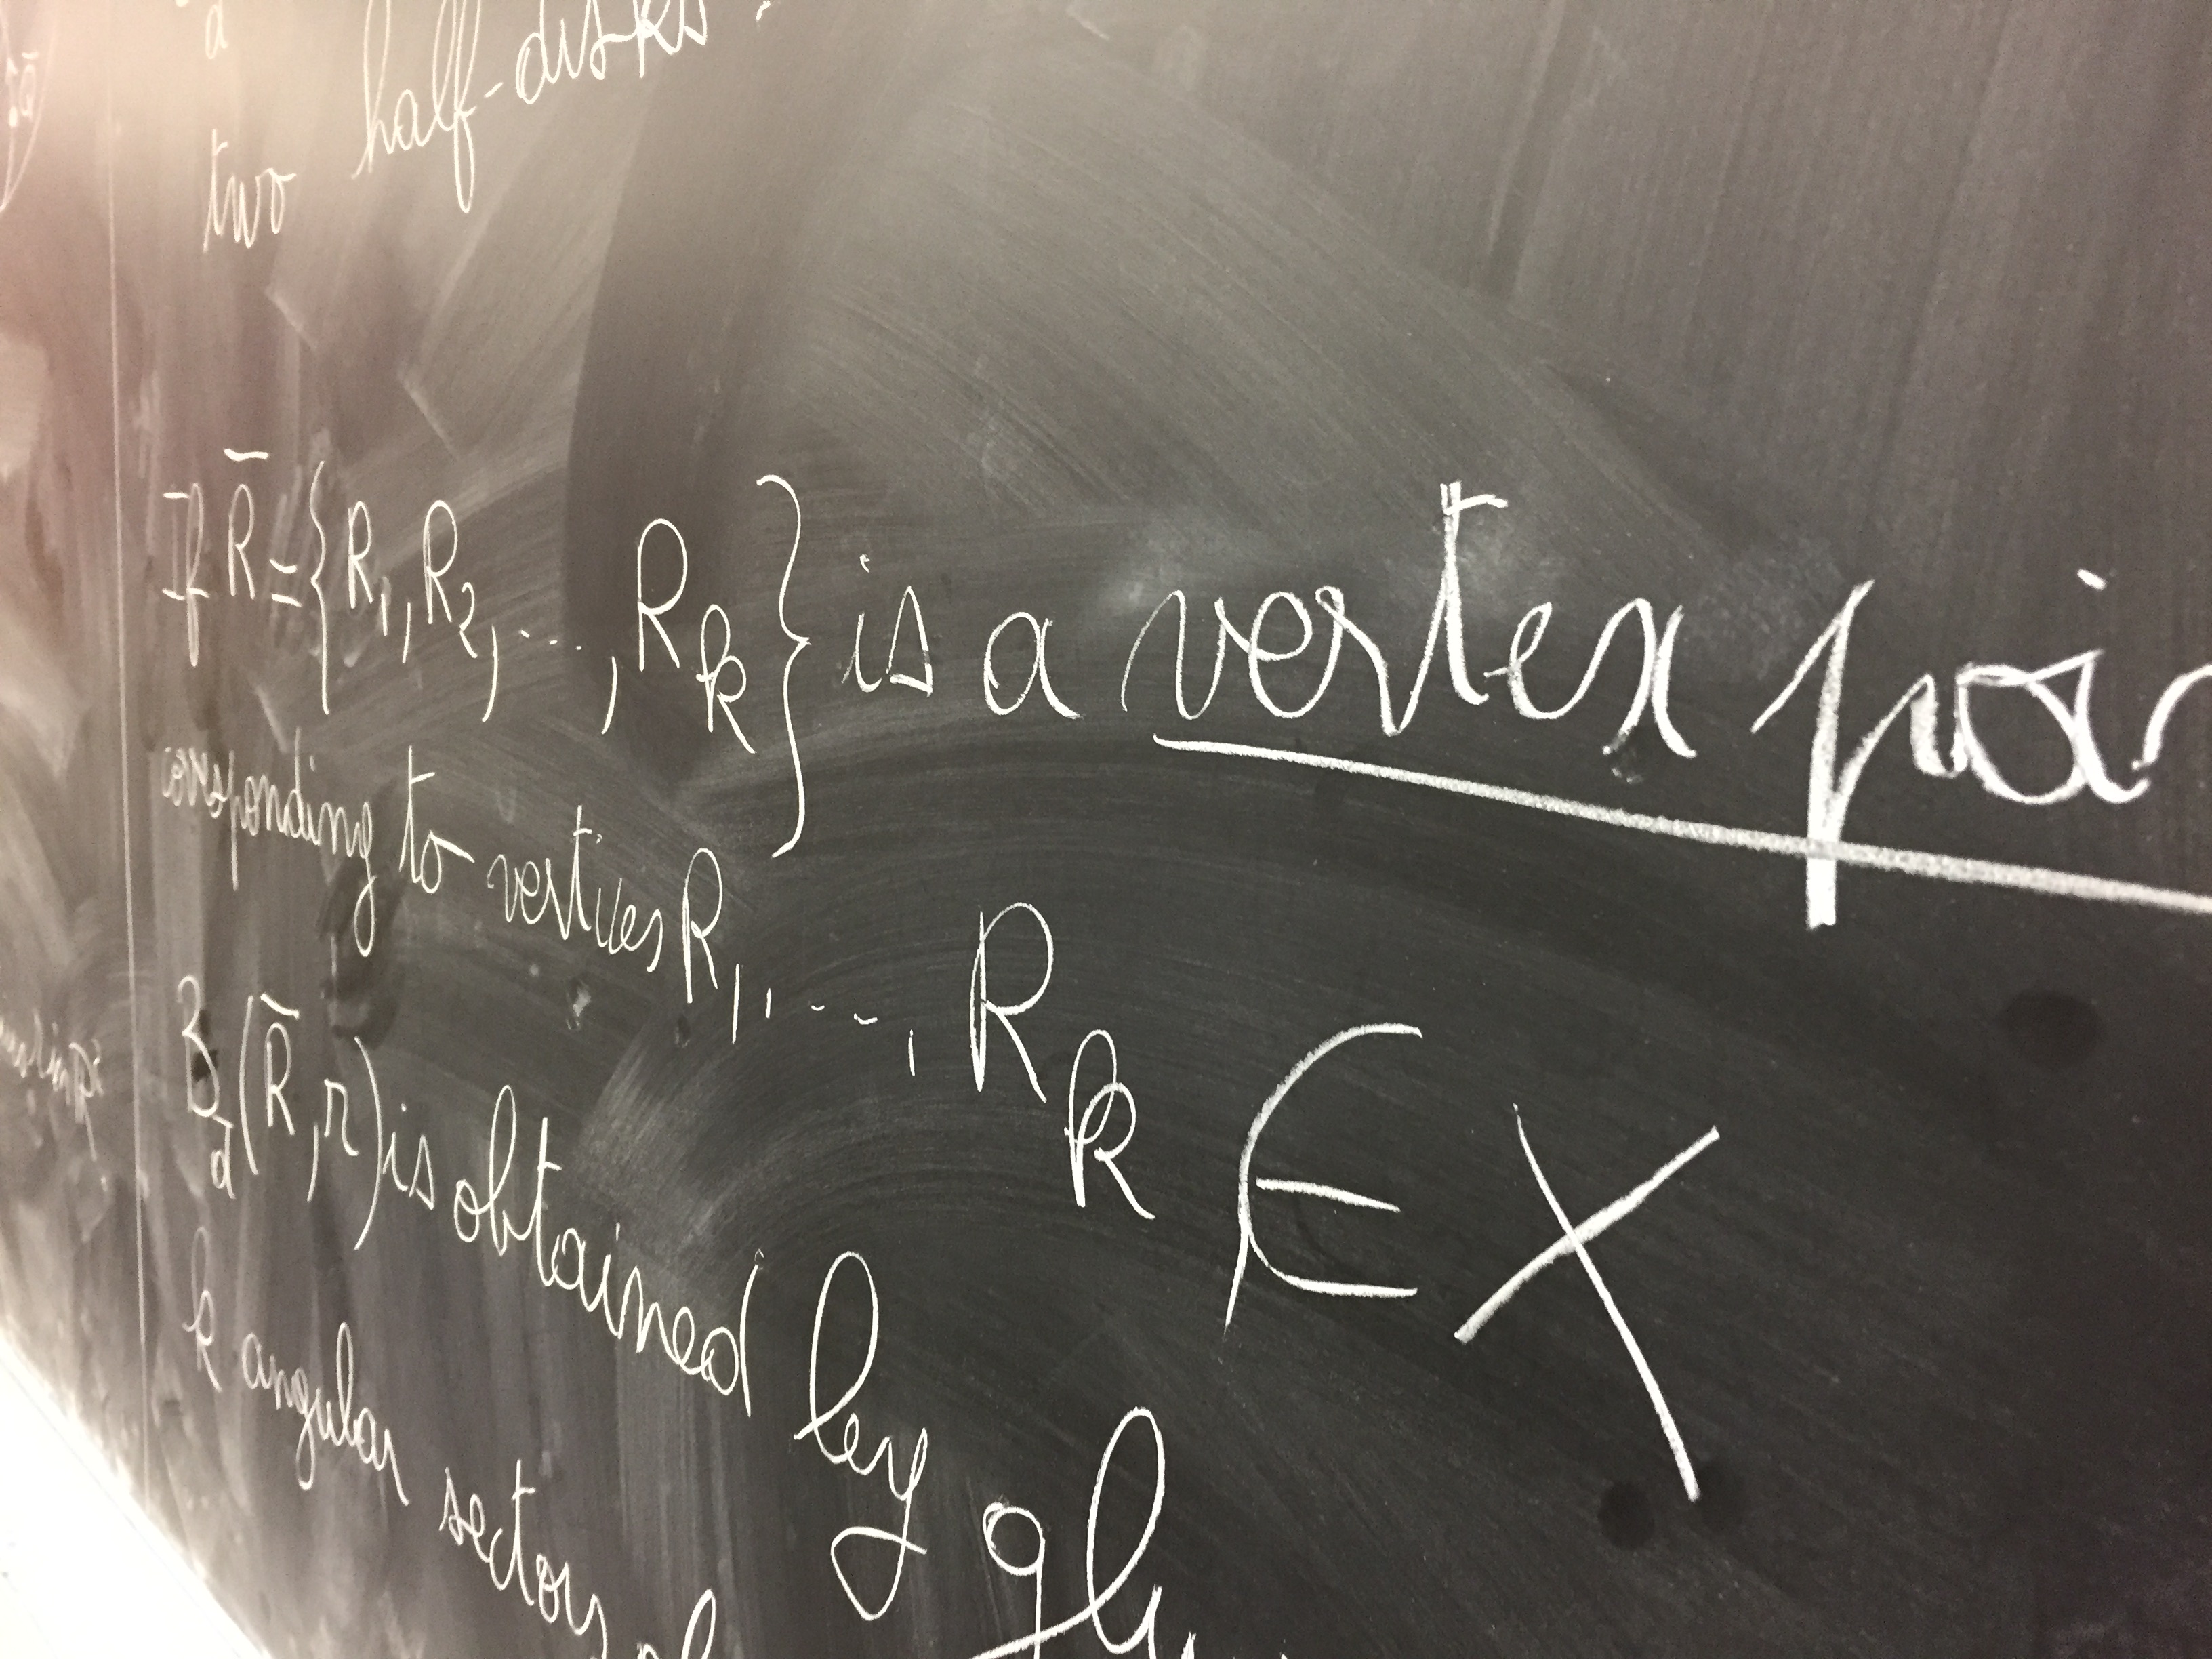 two half-disks.
If R̄ = {R₁, R₂, ..., R_k} is a vertex poi
corresponding to vertices R₁, ..., R_k ∈ X
B_d̄(R̄, r) is obtained by glu
k angular sectors of